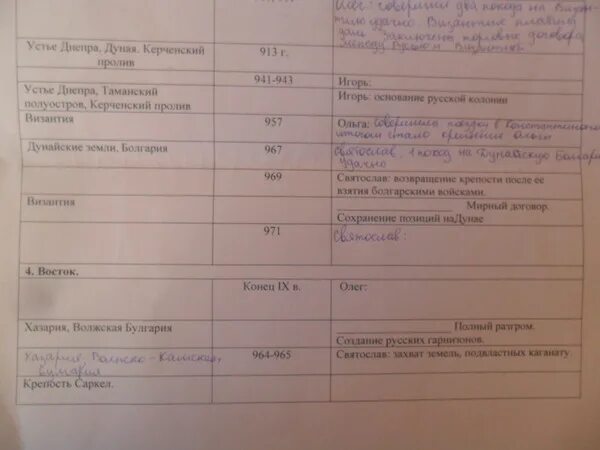 Олег: совершил два похода на Визан-
тию удачно Византия платила
дань заключены торговые договора
между Русью и Византией
Устье Днепра, Дуная. Керченский
пролив
913 г.
941-943
Игорь:
Устье Днепра, Таманский
полуостров, Керченский пролив
Игорь: основание русской колонии
Византия
957
Ольга: совершила поездку в Константинополь
итогом стало крещение
Дунайские земли. Болгария
967
Святослав, 1 поход на Дунайскую Болгарию
Удачно
969
Святослав: возвращение крепости после ее
взятия болгарскими войсками.
Византия
____________________ Мирный договор.
Сохранение позиций наДунае
971
Святослав:
4. Восток.
Конец IX в.
Олег:
Хазария, Волжская Булгария
____________________ Полный разгром.
Создание русских гарнизонов.
Хазария, Волжско-Камская
булгария
964-965
Святослав: захват земель, подвластных каганату.
Крепость Саркел.